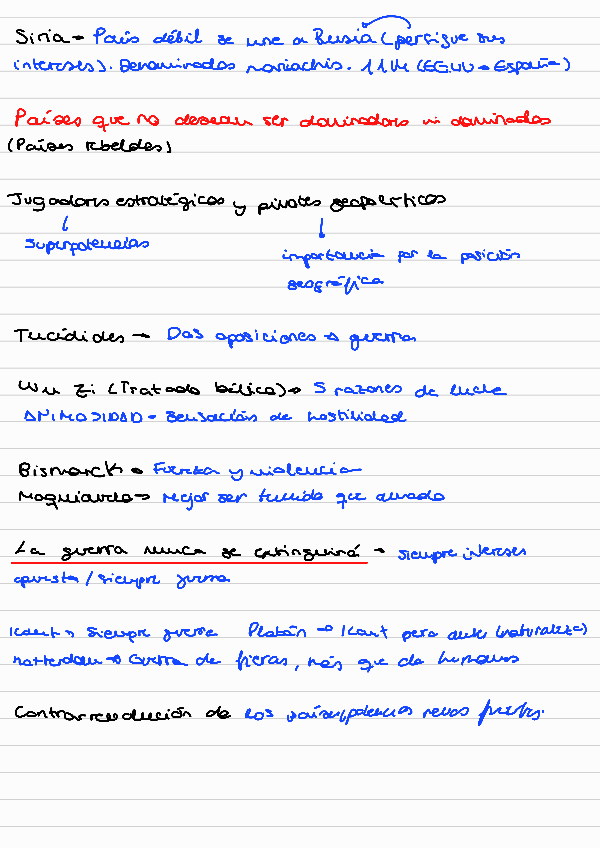 Siria → País débil se une a Rusia (persigue sus
intereses). Denominados mariachis. 11M (EEUU → España)
Países que no desean ser dominadores ni dominados
(Países rebeldes)
Jugadores estratégicos y pivotes geopolíticos
Superpotencias
importancia por la posición
geográfica
Tucídides → Dos oposiciones → guerra
Wu Zi (Tratado bélico) → 5 razones de lucha
ANIMOSIDAD → Sensación de hostilidad
Bismarck → Fuerza y violencia
Maquiavelo → Mejor ser temido que amado
La guerra nunca se extinguirá → siempre intereses
opuestos / siempre guerra
Kant → siempre guerra Platón → Kant pero antes (naturaleza)
Rotterdam → Guerra de fieras, más que de humanos
Contrarrevolución de los países/potencias